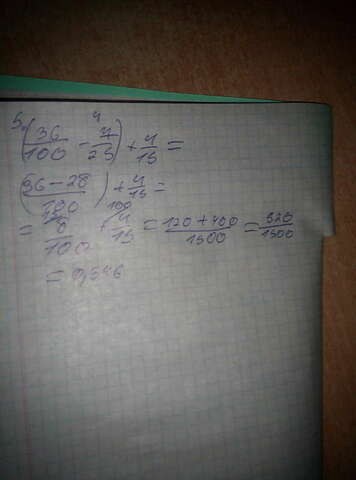 5. (36/100 - 7/25) + 4/15 =
(36 - 28/100) + 4/15 =
= 8/100 + 4/15 = 120 + 400/1500 = 520/1500
= 0,346